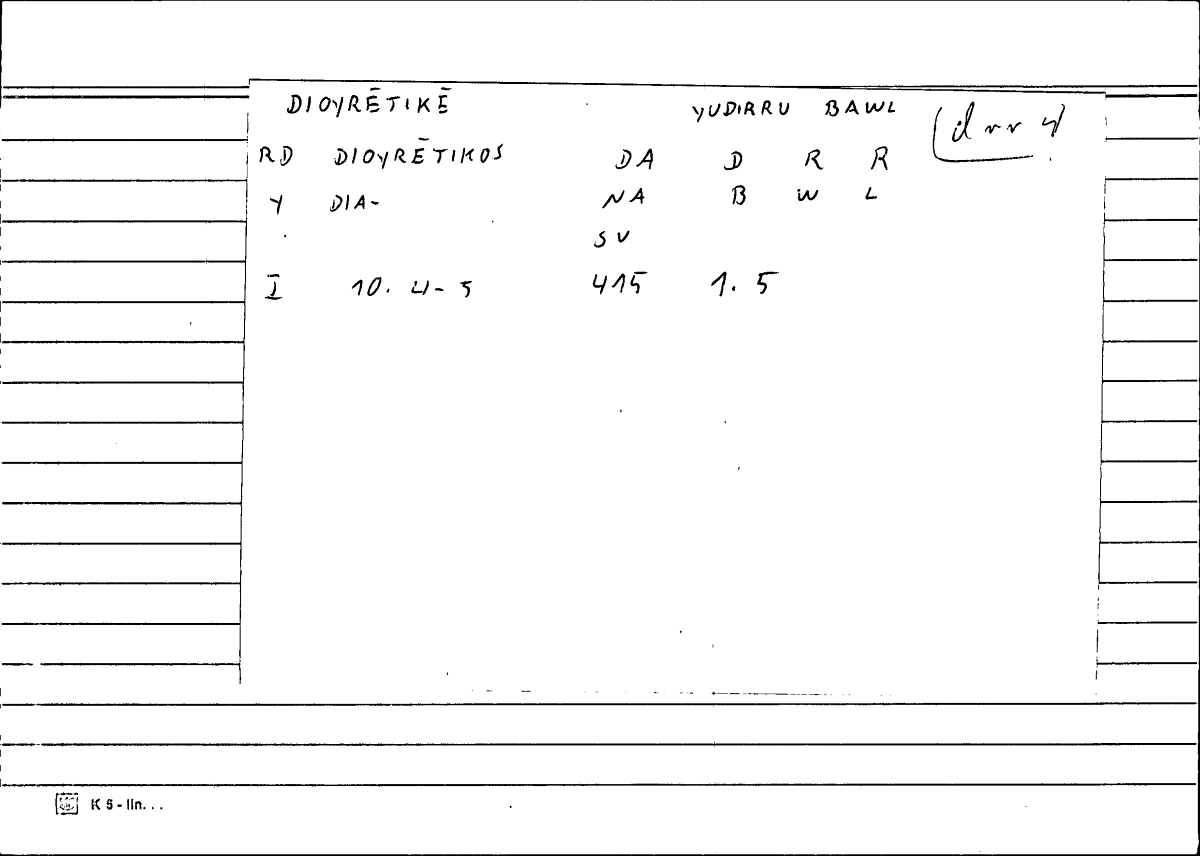 DIOYRĒTIKĒ YUDIRRU BAWL (drr 4)
RD DIOYRĒTIKOS DA D R R
Y DIA- NA B W L
SV
I 10. 4-5 415 1. 5
K 5 - lin. . .